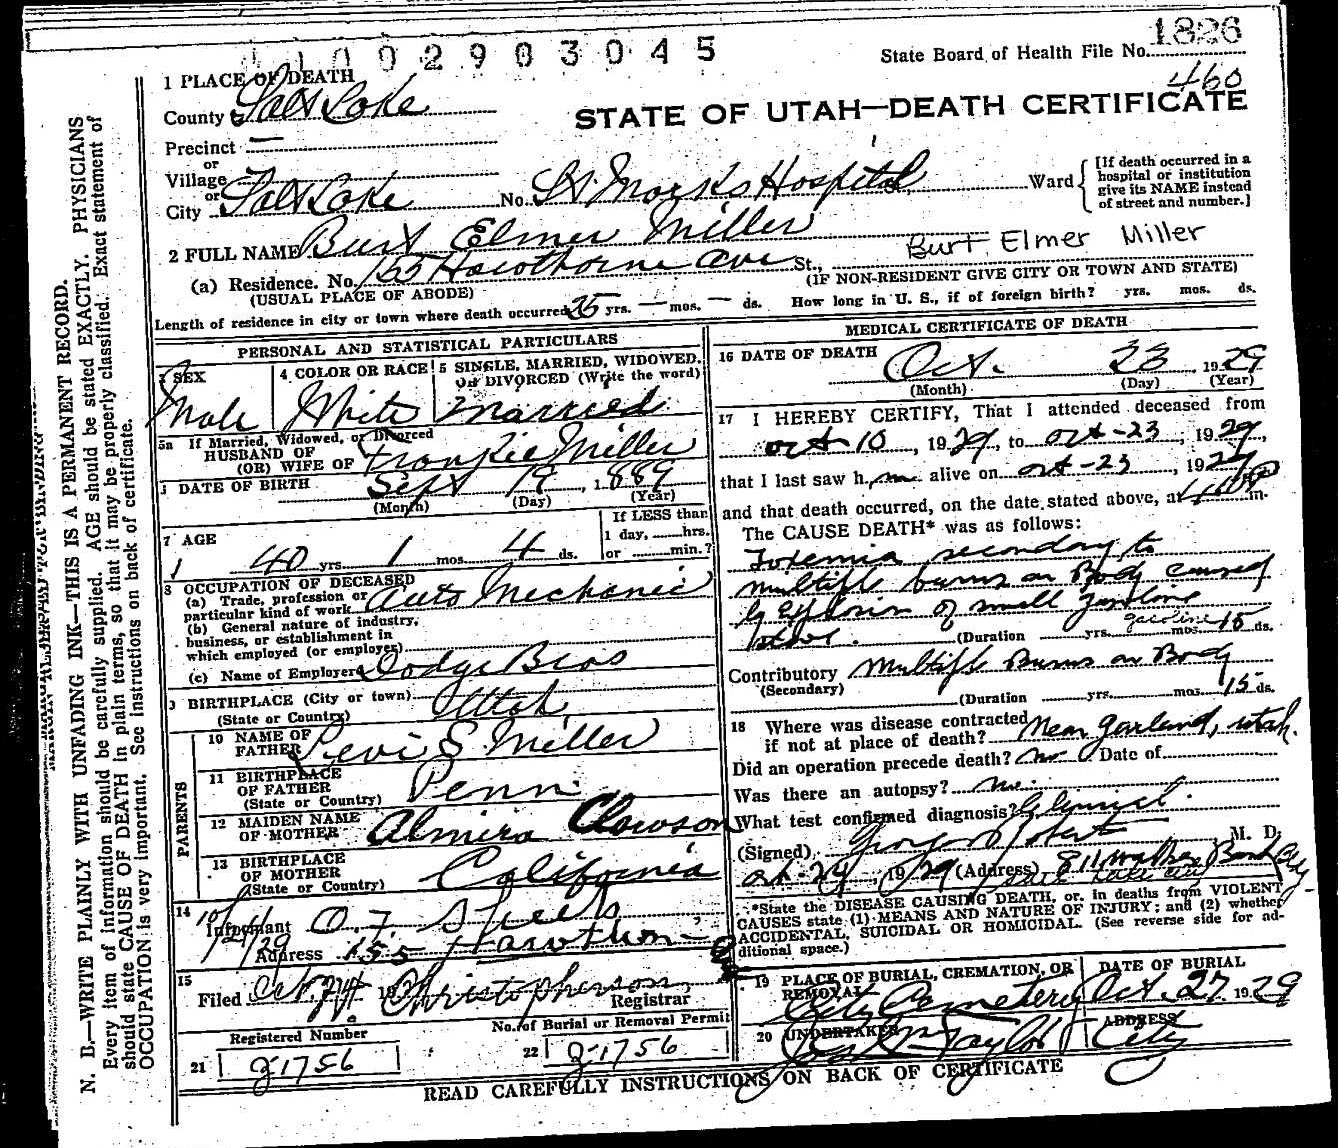 1002903045
State Board of Health File No. 1826
460
STATE OF UTAH—DEATH CERTIFICATE
1 PLACE OF DEATH
County Salt Lake
Precinct —
or
Village
or
City Salt Lake No. St. Marks Hospital Ward
[If death occurred in a
hospital or institution
give its NAME instead
of street and number.]
2 FULL NAME Burt Elmer Miller
Burt Elmer Miller
(a) Residence. No. 155 Hawthorne Ave St.,
(USUAL PLACE OF ABODE)
(IF NON-RESIDENT GIVE CITY OR TOWN AND STATE)
Length of residence in city or town where death occurred 35 yrs. — mos. — ds. How long in U. S., if of foreign birth? yrs. mos. ds.
PERSONAL AND STATISTICAL PARTICULARS
SEX
Male
4 COLOR OR RACE
White
5 SINGLE, MARRIED, WIDOWED,
OR DIVORCED (Write the word)
Married
5a If Married, Widowed, or Divorced
HUSBAND OF
(OR) WIFE OF Frankie Miller
DATE OF BIRTH Sept 19, 1889
(Month) (Day) (Year)
7 AGE
40 yrs. 1 mos. 4 ds.
If LESS than
1 day, hrs.
or min.?
8 OCCUPATION OF DECEASED
(a) Trade, profession or
particular kind of work Auto Mechanic
(b) General nature of industry,
business, or establishment in
which employed (or employer)
(c) Name of Employer Dodge Bros
9 BIRTHPLACE (City or town)
(State or Country) Utah
PARENTS
10 NAME OF
FATHER Levi S. Miller
11 BIRTHPLACE
OF FATHER
(State or Country) Penn
12 MAIDEN NAME
OF MOTHER Almira Clawson
13 BIRTHPLACE
OF MOTHER
(State or Country) California
14
Informant O. F.
Address 155 Hawthorne
15
Filed Oct. 24 Christopherson
Registrar
Registered Number
No. of Burial or Removal Permit
21 Q-1756
22 Q-1756
MEDICAL CERTIFICATE OF DEATH
16 DATE OF DEATH Oct. 23, 1929
(Month) (Day) (Year)
17 I HEREBY CERTIFY, That I attended deceased from
Oct-10, 1929, to Oct-23, 1929,
that I last saw him alive on Oct-23, 1929
and that death occurred, on the date stated above, at m.
The CAUSE DEATH* was as follows:
Toxemia secondary to
multiple burns on Body caused
by Explosion of small gasoline
stove.
gasoline
(Duration yrs. mos. 15 ds.
Contributory Multiple Burns on Body
(Secondary)
(Duration yrs. mos. 15 ds.
18 Where was disease contracted
if not at place of death? Near Garland, Utah.
Did an operation precede death? No Date of
Was there an autopsy? No.
What test confirmed diagnosis? Clinical.
(Signed) George M. D.
Oct-24 1929 (Address) 811 Walker Bank Bldg
Salt Lake City
*State the DISEASE CAUSING DEATH, or, in deaths from VIOLENT
CAUSES state (1) MEANS AND NATURE OF INJURY; and (2) whether
ACCIDENTAL, SUICIDAL OR HOMICIDAL. (See reverse side for ad-
ditional space.)
19 PLACE OF BURIAL, CREMATION, OR
REMOVAL
City Cemetery
DATE OF BURIAL
Oct. 27 1929
20 UNDERTAKER
Taylor
ADDRESS
City
READ CAREFULLY INSTRUCTIONS ON BACK OF CERTIFICATE
N. B.—WRITE PLAINLY WITH UNFADING INK—THIS IS A PERMANENT RECORD.
Every item of information should be carefully supplied. AGE should be stated EXACTLY. PHYSICIANS
should state CAUSE OF DEATH in plain terms, so that it may be properly classified. Exact statement of
OCCUPATION is very important. See instructions on back of certificate.